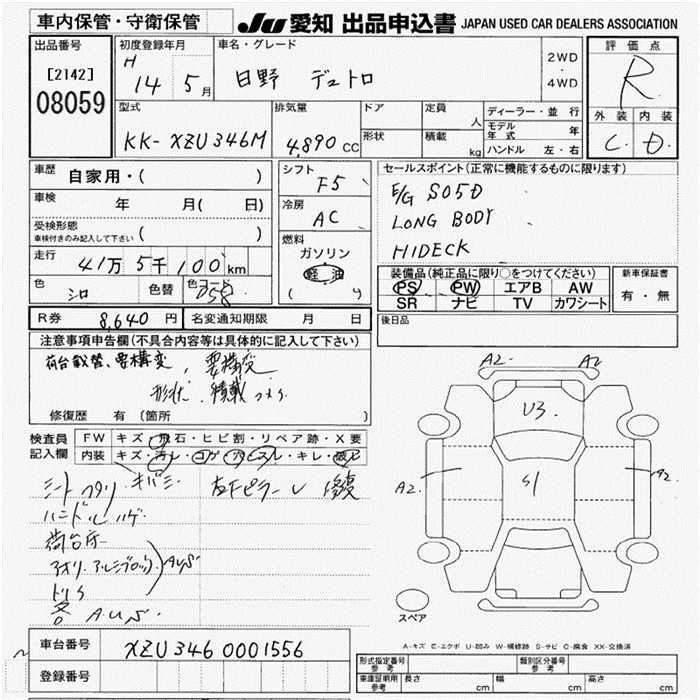 車内保管・守衛保管
JU 愛知 出品申込書 JAPAN USED CAR DEALERS ASSOCIATION
出品番号
[2142]
08059
初度登録年月
H
14 5月
車名・グレード
日野 デュトロ
2WD
・
4WD
評価点
R
外装 内装
C D
型式
KK-XZU346M
排気量
4,890 CC
ドア
形状
定員
人
積載
kg
ディーラー・並行
モデル年式 年
ハンドル 左・右
車歴 自家用・( )
車検 年 月( 日)
受検形態
車検付きのみ記入して下さい ( )
走行 41万5千100km
色 シロ 色替 色コード 058
シフト
F5
冷房
AC
燃料
ガソリン
軽油
( )
セールスポイント(正常に機能するものに限ります)
E/G S05D
LONG BODY
HIDECK
装備品(純正品に限り○をつけてください)
PS PW エアB AW
SR ナビ TV カワシート
新車保証書
有・無
R券 8,640円 名変通知期限 月 日
後日品
注意事項申告欄(不具合内容等は具体的に記入して下さい)
荷台載替、要構変、要構変
形状、積載
修復歴 有 (箇所 )
検査員
記入欄
FW キズ・飛石・ヒビ割・リペア跡・X要
内装 キズ・汚レ・コゲ・穴・スレ・キレ・破レ
シート キバミ 左下ピラーレ 修復
ハンドルハゲ
荷台床
アオリ アルミブロック A.U.S
トリイ
各 A.U.S.
A2 A2
U3
A2 S1 A2
スペア
A-キズ E-エクボ U-凹み W-補修跡 S-サビ C-腐食 XX-交換済
車台番号 XZU346 0001556
登録番号
形式指定番号 参考 類別区分番号 参考
車庫証明用 参考 長さ cm 幅 cm 高さ cm